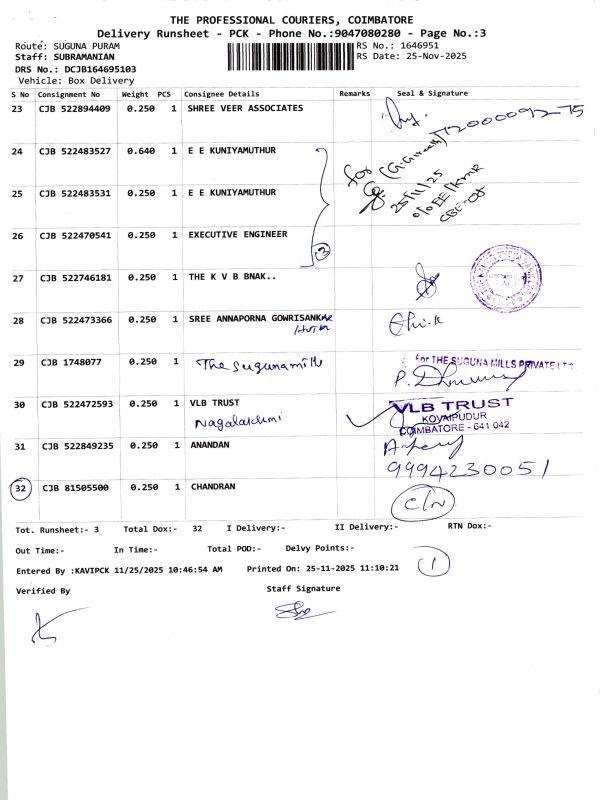 THE PROFESSIONAL COURIERS, COIMBATORE
Delivery Runsheet - PCK - Phone No.:9047080280 - Page No.:3
Route: SUGUNA PURAM
RS No.: 1646951
Staff: SUBRAMANIAN
RS Date: 25-Nov-2025
DRS No.: DCJB164695103
Vehicle: Box Delivery
S No Consignment No Weight PCS Consignee Details Remarks Seal & Signature
23 CJB 522894409 0.250 1 SHREE VEER ASSOCIATES
24 CJB 522483527 0.640 1 E E KUNIYAMUTHUR
for
25/11/25
25 CJB 522483531 0.250 1 E E KUNIYAMUTHUR
26 CJB 522470541 0.250 1 EXECUTIVE ENGINEER
3
27 CJB 522746181 0.250 1 THE K V B BNAK..
28 CJB 522473366 0.250 1 SREE ANNAPORNA GOWRISANKAR
29 CJB 1748077 0.250 1 The Suguna mills
For THE SUGUNA MILLS PRIVATE LTD.
30 CJB 522472593 0.250 1 VLB TRUST
Nagalakshmi
VLB TRUST
KOVAIPUDUR
COIMBATORE - 641 042
31 CJB 522849235 0.250 1 ANANDAN
9994230051
32 CJB 81505500 0.250 1 CHANDRAN
C/N
Tot. Runsheet:- 3 Total Dox:- 32 I Delivery:- II Delivery:- RTN Dox:-
Out Time:- In Time:- Total POD:- Delvy Points:-
1
Entered By :KAVIPCK 11/25/2025 10:46:54 AM Printed On: 25-11-2025 11:10:21
Verified By Staff Signature